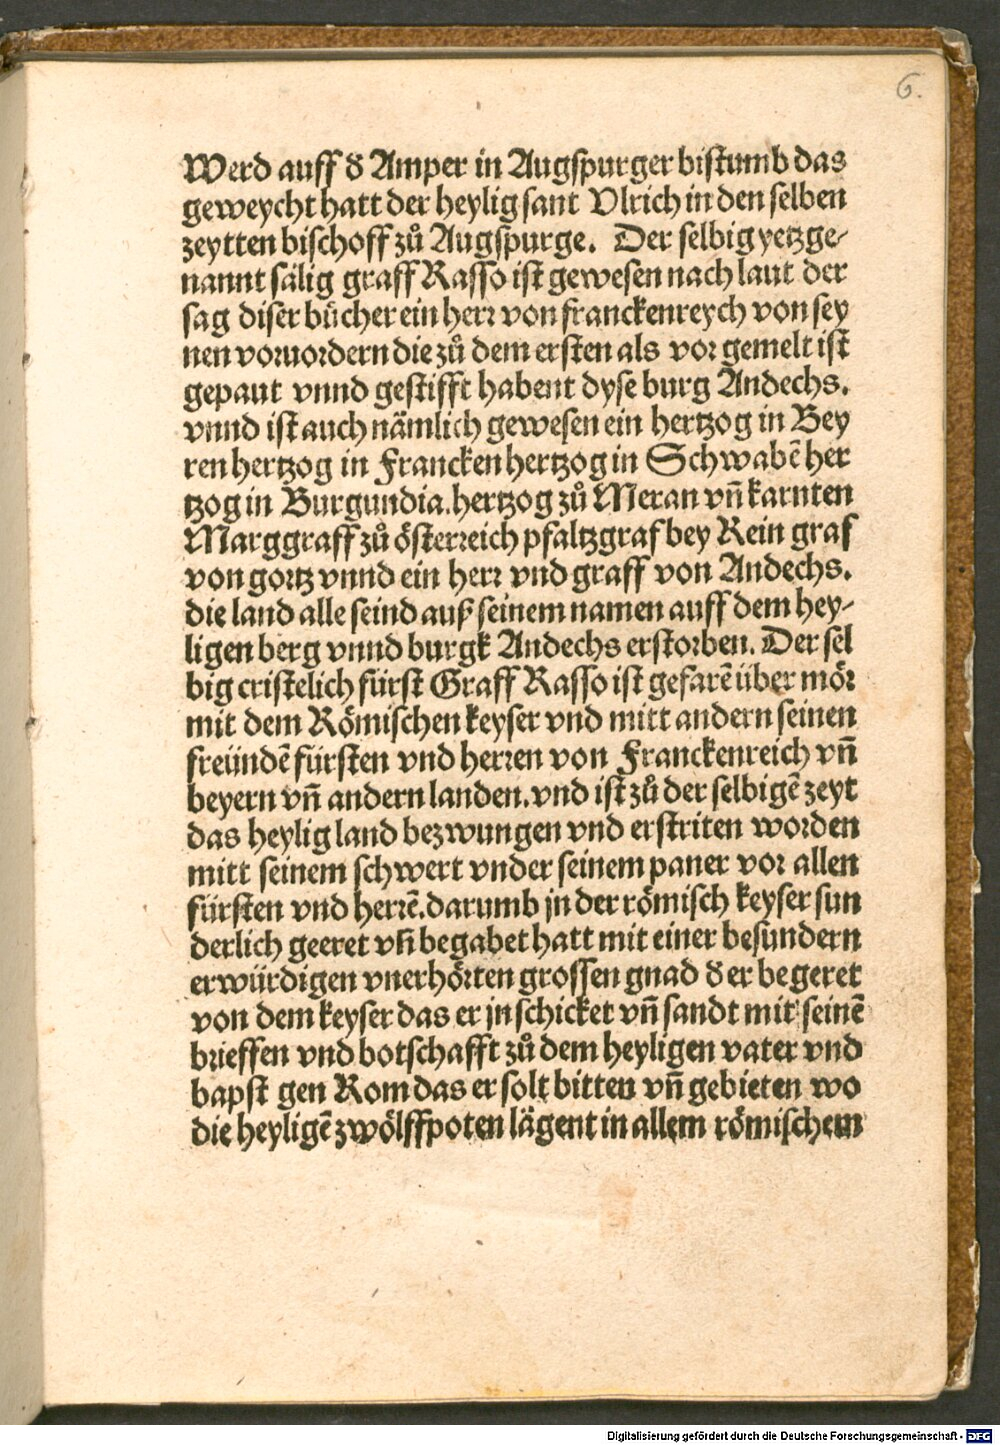 6.
Werd auff d̕ Amper in Augspurger bistumb das
geweycht hatt der heylig sant Vlrich in den selben
zeytten bischoff zů Augspurge. Der selbig yetzge-
nannt sälig graff Rasso ist gewesen nach laut der
sag diser bücher ein herr von franckenreych von sey
nen voruordern die zů dem ersten als vor gemelt ist
gepaut vnnd gestifft habent dyse burg Andechs.
vnnd ist auch nämlich gewesen ein hertzog in Bey
ren hertzog in Francken hertzog in Schwabē her
tzog in Burgundia. hertzog zů Meran vn̄ karnten
Marggraff zů österreich pfaltzgraf bey Rein graf
von gortz vnnd ein herr vnd graff von Andechs.
die land alle seind auß seinem namen auff dem hey-
ligen berg vnnd burgk Andechs erstorben. Der sel
big cristelich fürst Graff Rasso ist gefarē über mör
mit dem Römischen keyser vnd mitt andern seinen
freündē fürsten vnd herren von Franckenreich vn̄
beyern vn̄ andern landen. vnd ist zů der selbigē zeyt
das heylig land bezwungen vnd erstriten worden
mitt seinem schwert vnder seinem paner vor allen
fürsten vnd herrē. darumb jn der römisch keyser sun
derlich geeret vn̄ begabet hatt mit einer besundern
erwürdigen vnerhörten grossen gnad d̕ er begeret
von dem keyser das er jn schicket vn̄ sandt mit seinē
brieffen vnd botschafft zů dem heyligen vater vnd
bapst gen Rom das er solt bitten vn̄ gebieten wo
die heyligē zwölffpoten lägent in allem römischem
Digitalisierung gefördert durch die Deutsche Forschungsgemeinschaft - DFG